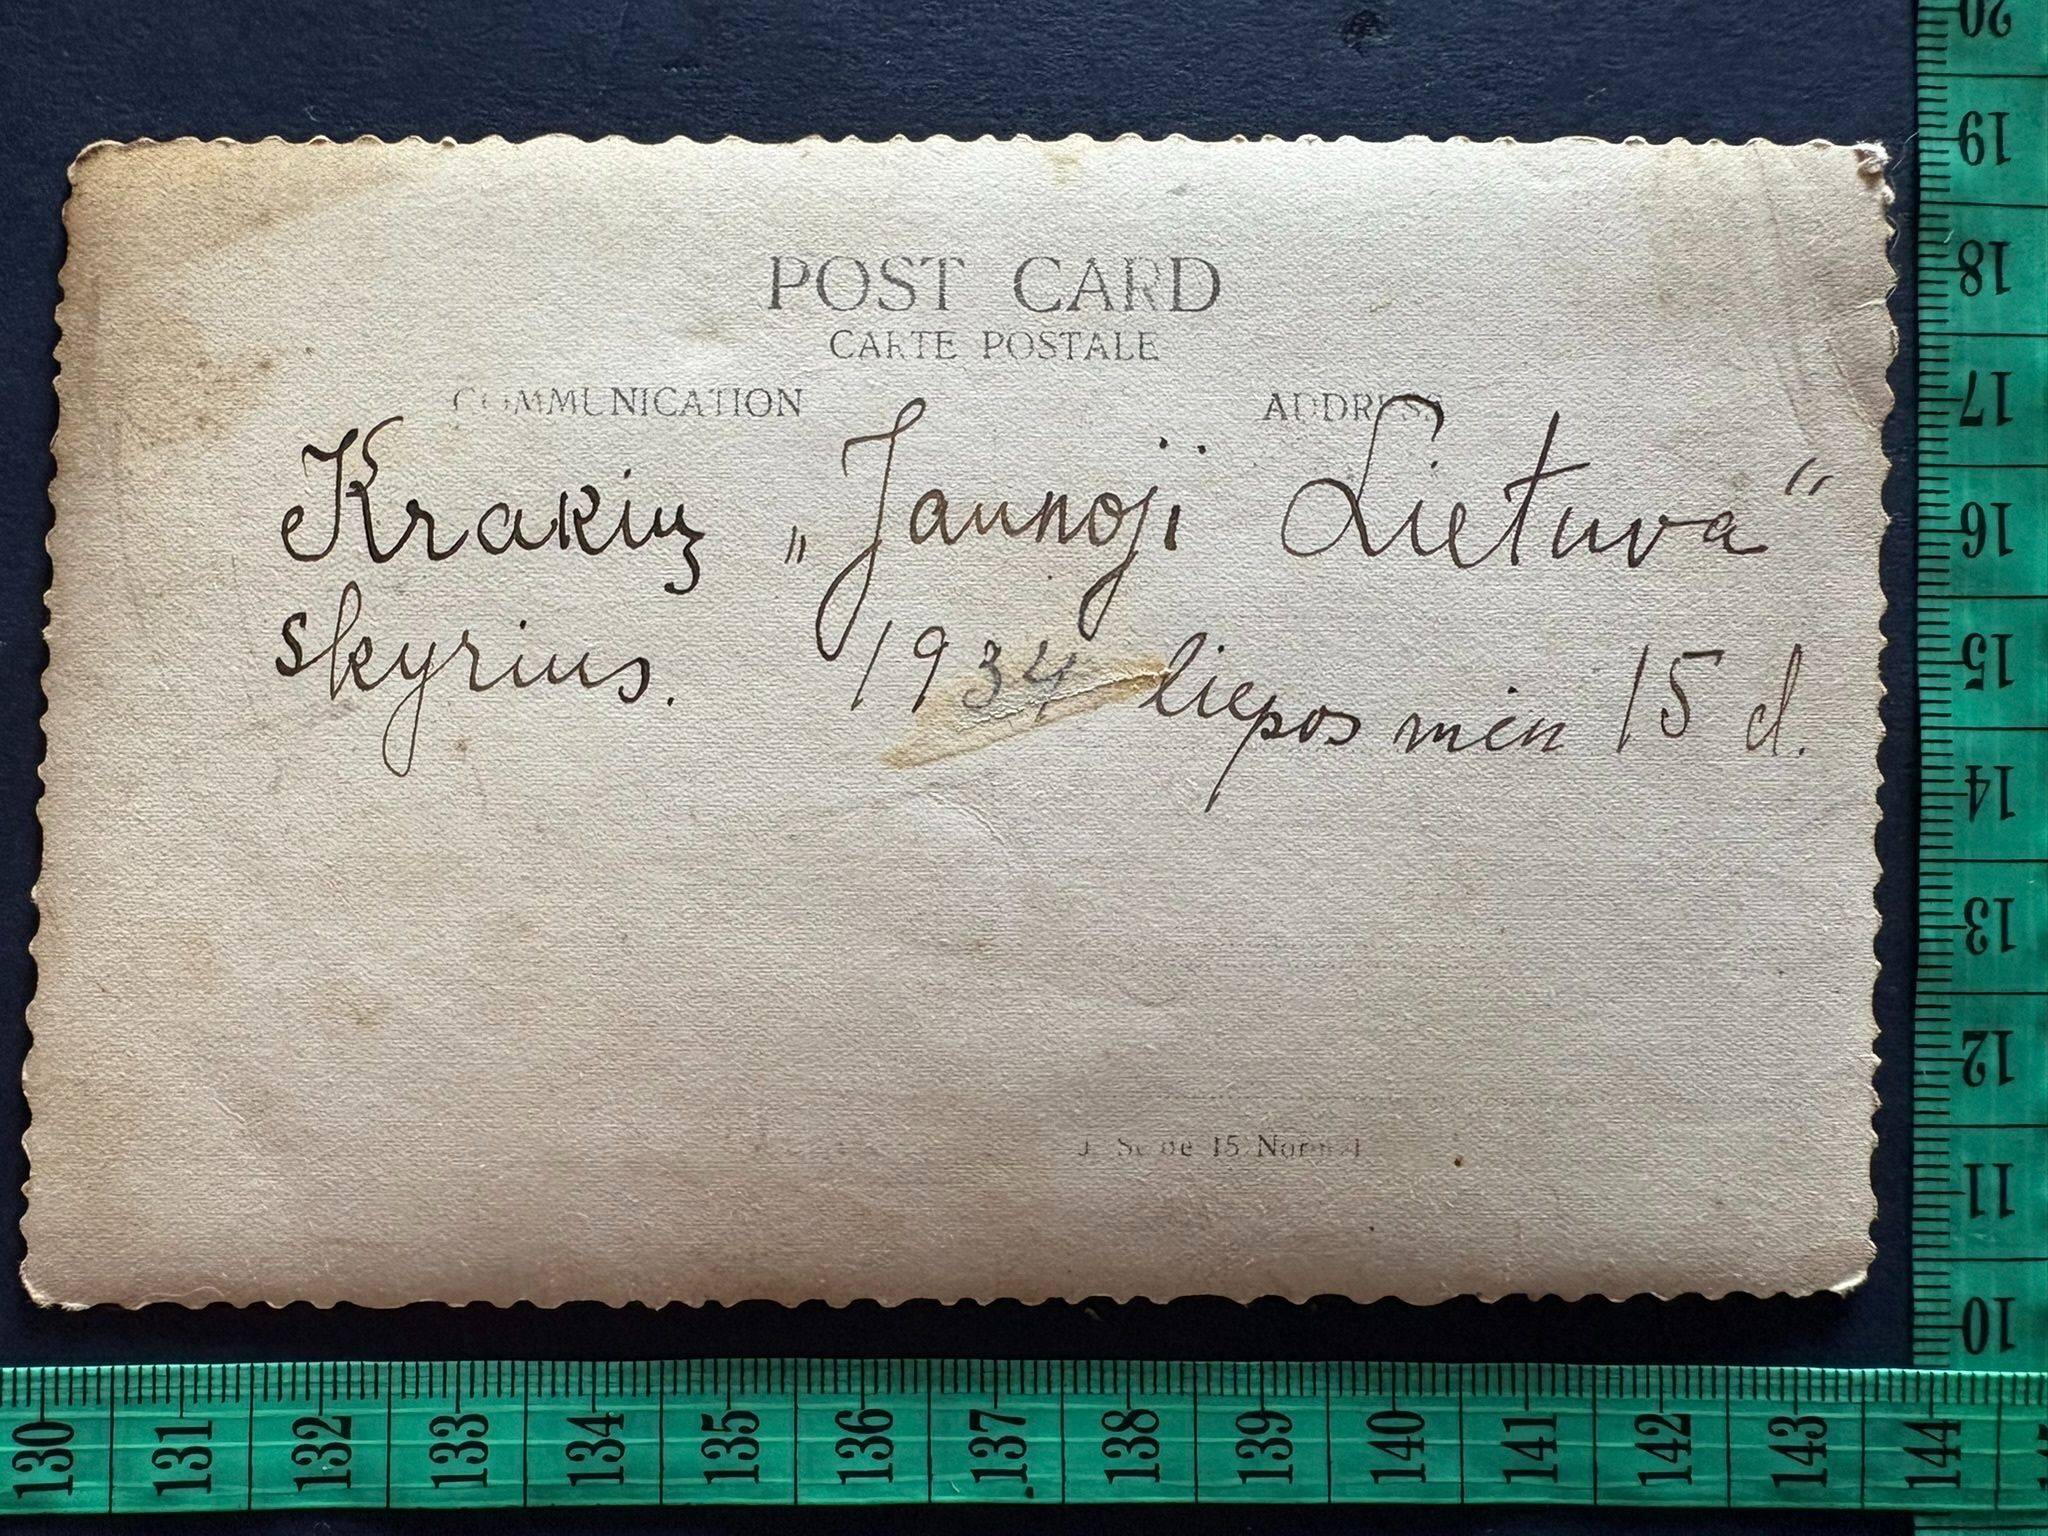 POST CARD
CARTE POSTALE
COMMUNICATION ADDRESS
Krakių „Jaunoji Lietuva“
skyrius. 1934 liepos mėn 15 d.
15 Normal
20
19
18
17
16
15
14
13
12
11
10
130 131 132 133 134 135 136 137 138 139 140 141 142 143 144